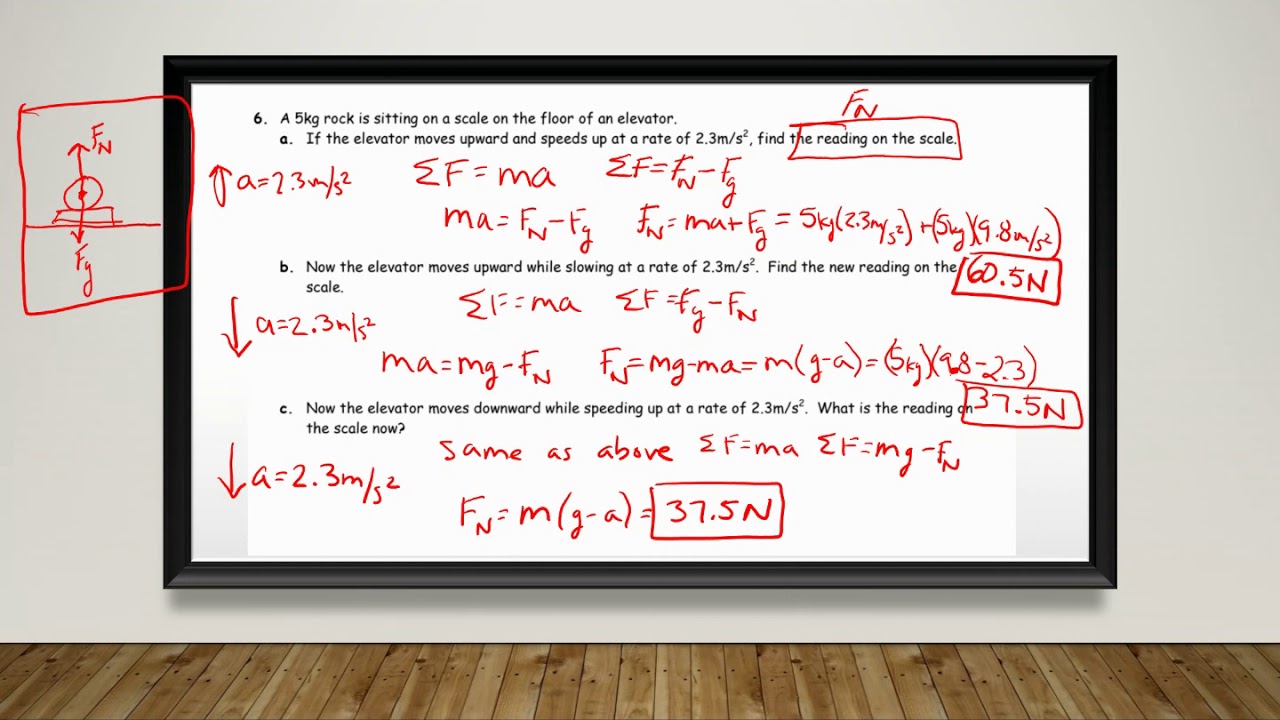 F_N
6. A 5kg rock is sitting on a scale on the floor of an elevator.
a. If the elevator moves upward and speeds up at a rate of 2.3m/s², find the reading on the scale.
↑ a=2.3m/s² ΣF=ma ΣF=F_N-F_g
F_N
ma=F_N-F_g F_N=ma+F_g=5kg(2.3m/s²)+(5kg)(9.8m/s²)
F_g
b. Now the elevator moves upward while slowing at a rate of 2.3m/s². Find the new reading on the
60.5N
scale.
ΣF=ma ΣF=F_g-F_N
↓ a=2.3m/s²
ma=mg-F_N F_N=mg-ma=m(g-a)=(5kg)(9.8-2.3)
37.5N
c. Now the elevator moves downward while speeding up at a rate of 2.3m/s². What is the reading on
the scale now?
same as above ΣF=ma ΣF=mg-F_N
↓ a=2.3m/s²
F_N=m(g-a)=37.5N